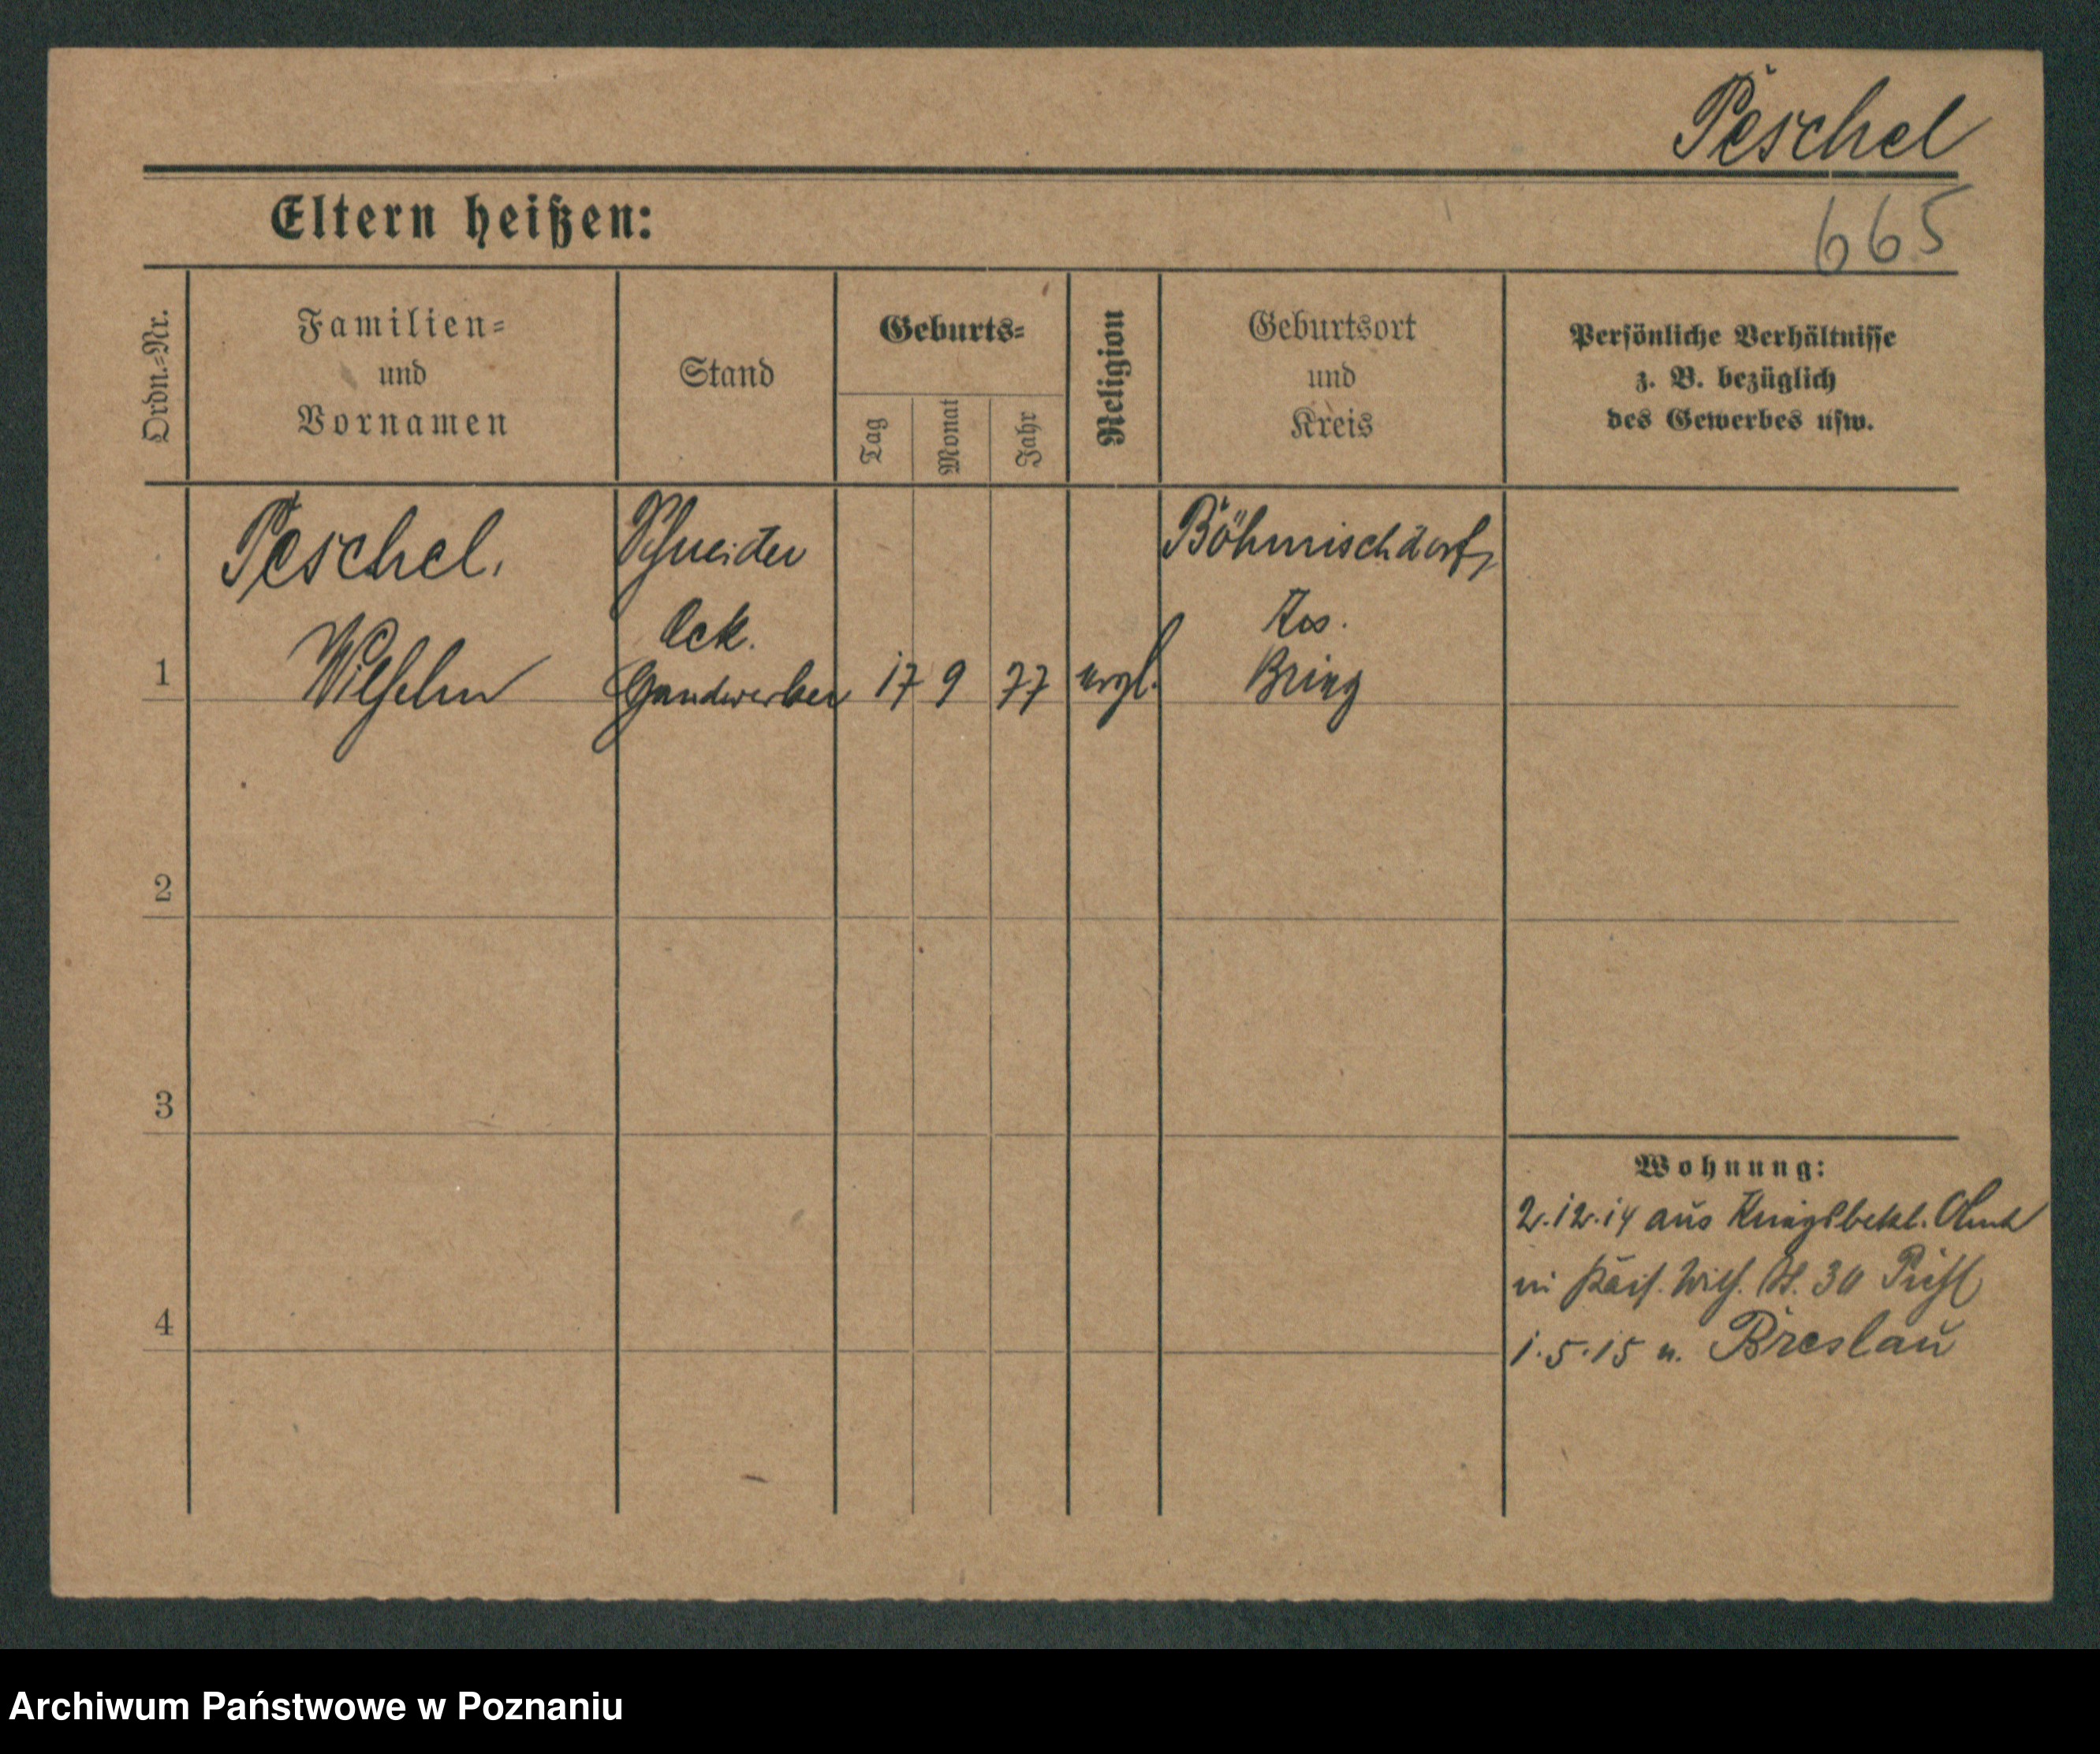 Peschel
Eltern heißen:
665
Ordn.-Nr.
Familien-
und
Vornamen
Stand
Geburts-
Tag
Monat
Jahr
Religion
Geburtsort
und
Kreis
Persönliche Verhältnisse
z. B. bezüglich
des Gewerbes usw.
Peschel,
Wilhelm
Schneider
Oek.
Handwerker
17 9 77
evgl.
Böhmischdorf,
Krs.
Brieg
1
2
3
4
Wohnung:
2.12.14 aus Kriegsbekl. Amt
in Kais. Wilh. St. 30
1.5.15 n. Breslau
Archiwum Państwowe w Poznaniu